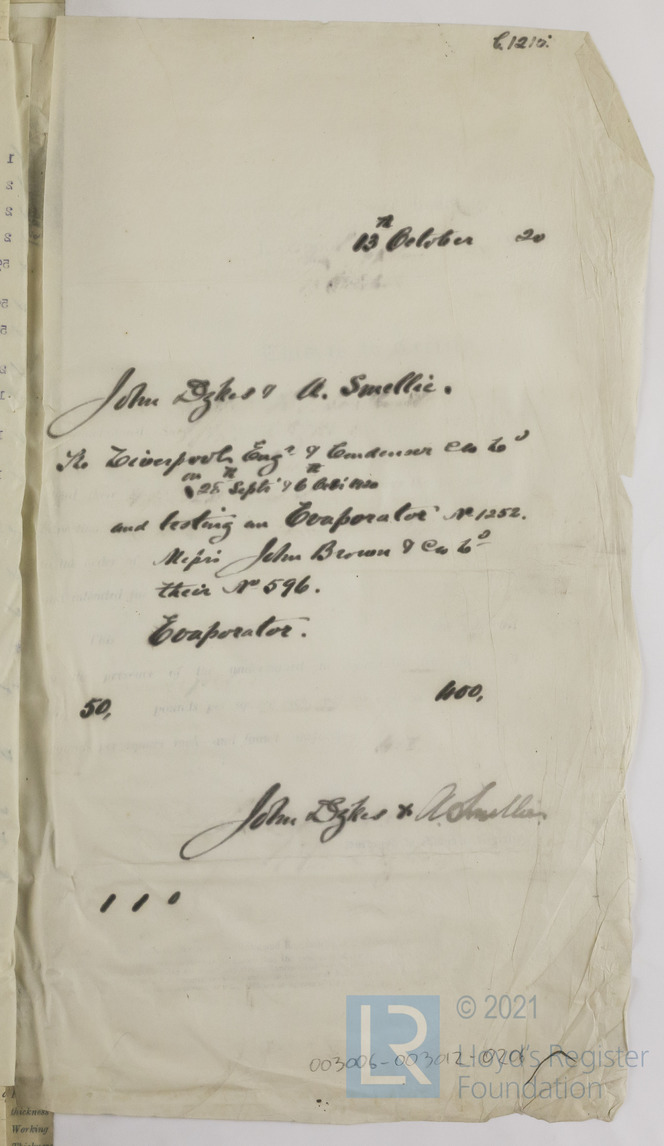 C.1215.
13th October 20
John Dykes & A. Smellie.
The Liverpool Engr & Condenser Co Ld
on 28th Septr & 6th Octr 1920
and testing an Evaporator No 1252.
Messrs John Brown & Co Ld
their No 596.
Evaporator.
50, 400,
John Dykes & A. Smellie
1 1 0
LR © 2021
Lloyd's Register
Foundation
thickness
Working